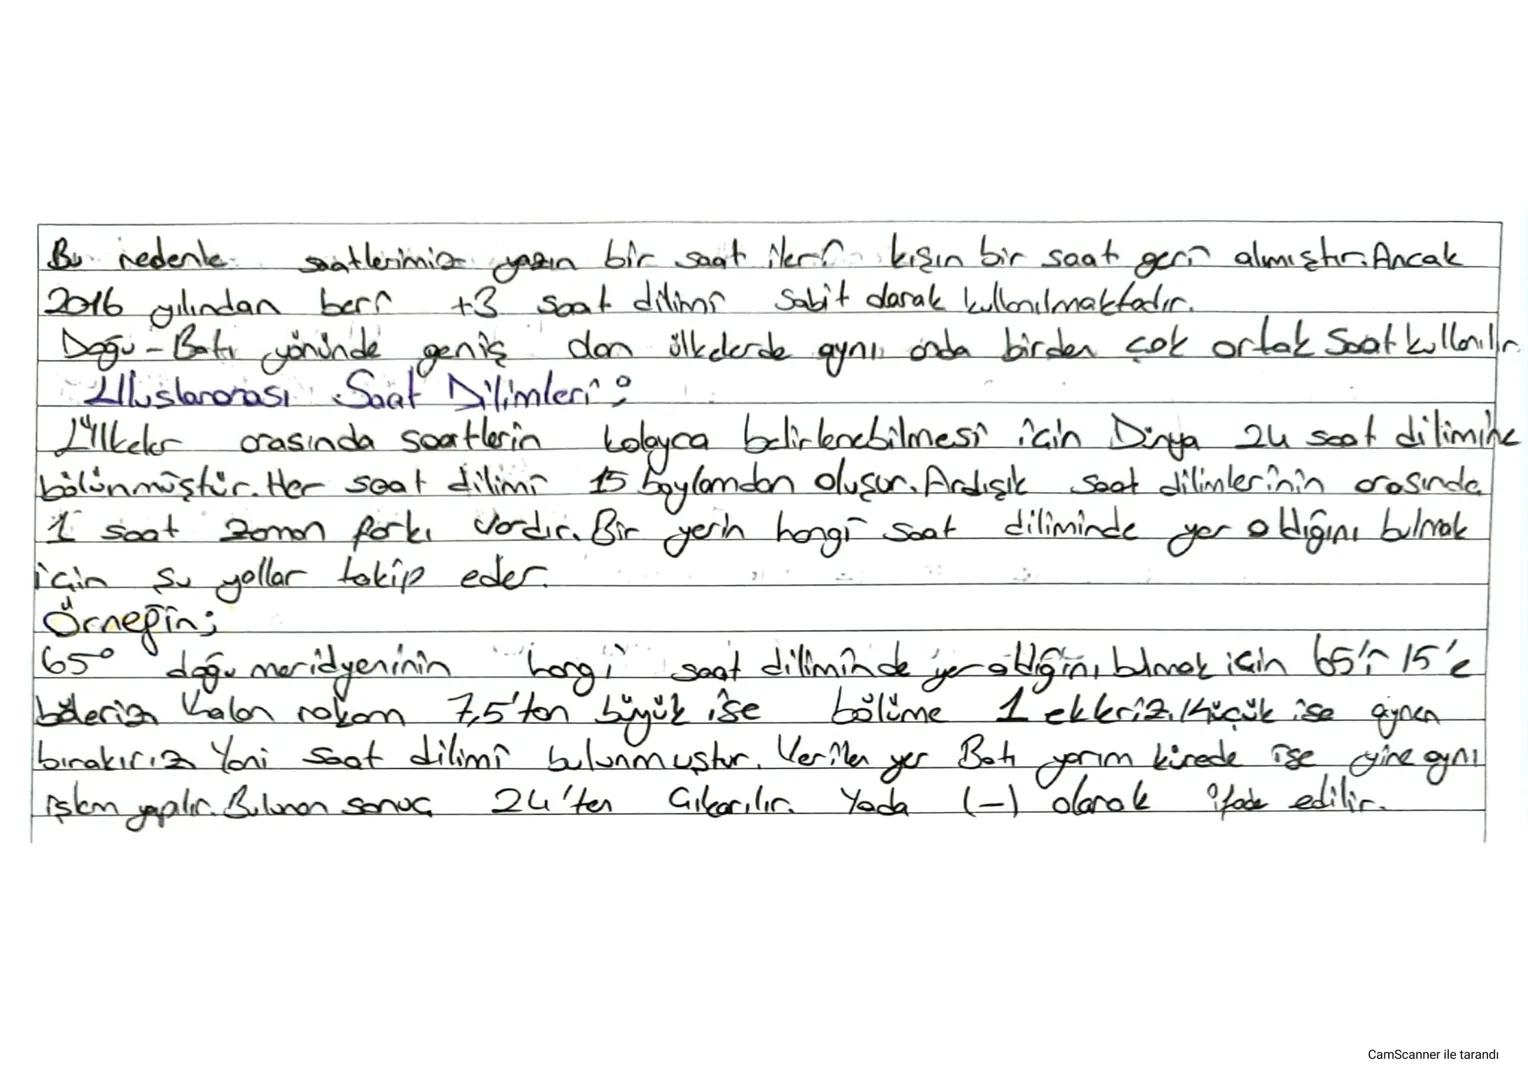 Bu nedenle saatlerimiz yazın bir saat ileri kışın bir saat geri alınmıştır. Ancak
2016 yılından beri +3 saat dilimi sabit olarak kullanılmaktadır.
Doğu-Batı yönünde geniş olan ülkelerde aynı anda birden çok ortak saat kullanılır.
Uluslararası Saat Dilimleri:
Ülkeler arasında saatlerin kolayca belirlenebilmesi için Dünya 24 saat dilimine
bölünmüştür. Her saat dilimi 15 boylamdan oluşur. Ardışık saat dilimlerinin arasında
1 saat zaman farkı vardır. Bir yerin hangi saat diliminde yer aldığını bulmak
için şu yollar takip eder.
Örneğin;
65° doğu meridyeninin hangi saat diliminde yer aldığını bulmak için 65'i 15'e
böleriz kalan rakam 7,5'tan büyük ise bölüme 1 ekleriz. Küçük ise aynen
bırakırız Yani saat dilimi bulunmuştur. Verilen yer Batı yarım kürede ise yine aynı
işlem yapılır. Bulunan sonuç 24'ten çıkarılır. Yada (-) olarak ifade edilir.
CamScanner ile tarandı